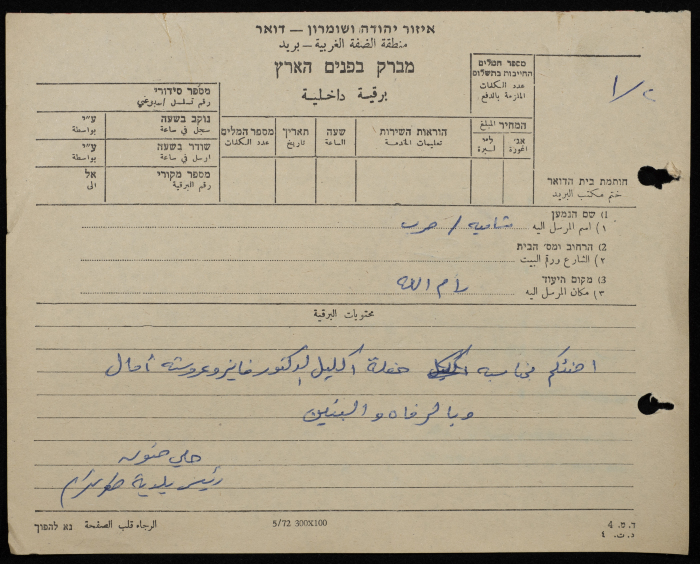 איזור יהודה ושומרון — דואר
منطقة الضفة الغربية — بريد
מברק בפנים הארץ
برقية داخلية
מספר המלים
החייבות בתשלום
عدد الكلمات
الملزمة بالدفع
מספר סידורי
رقم تسلسل / اسبوعي
נוקב בשעה
سجل في ساعة
ע״י
بواسطة
שודר בשעה
ارسل في ساعة
ע״י
بواسطة
מספר מקורי
رقم البرقية
אל
الى
מספר המלים
عدد الكلمات
תאריך
تاريخ
שעה
الساعة
הוראות השירות
تعليمات الخدمة
המחיר المبلغ
אג׳
اغورة
ל״י
ليرة
חותמת בית הדואר
ختم مكتب البريد
1) שם הנמען
١) اسم المرسل اليه شاميه / حرب
2) הרחוב ומס׳ הבית
٢) الشارع ورقم البيت
3) מקום היעוד
٣) مكان المرسل اليه رام الله
محتويات البرقية
اهنئكم بمناسبه حفلة اكليل الدكتور فايز وعروسته آمال
وبالرفاه والبنين
حلمي حنون
رئيس بلدية طولكرم
ד. מ. 4
د. ت. ٤
5/72 300X100
الرجاء قلب الصفحة נא להפוך